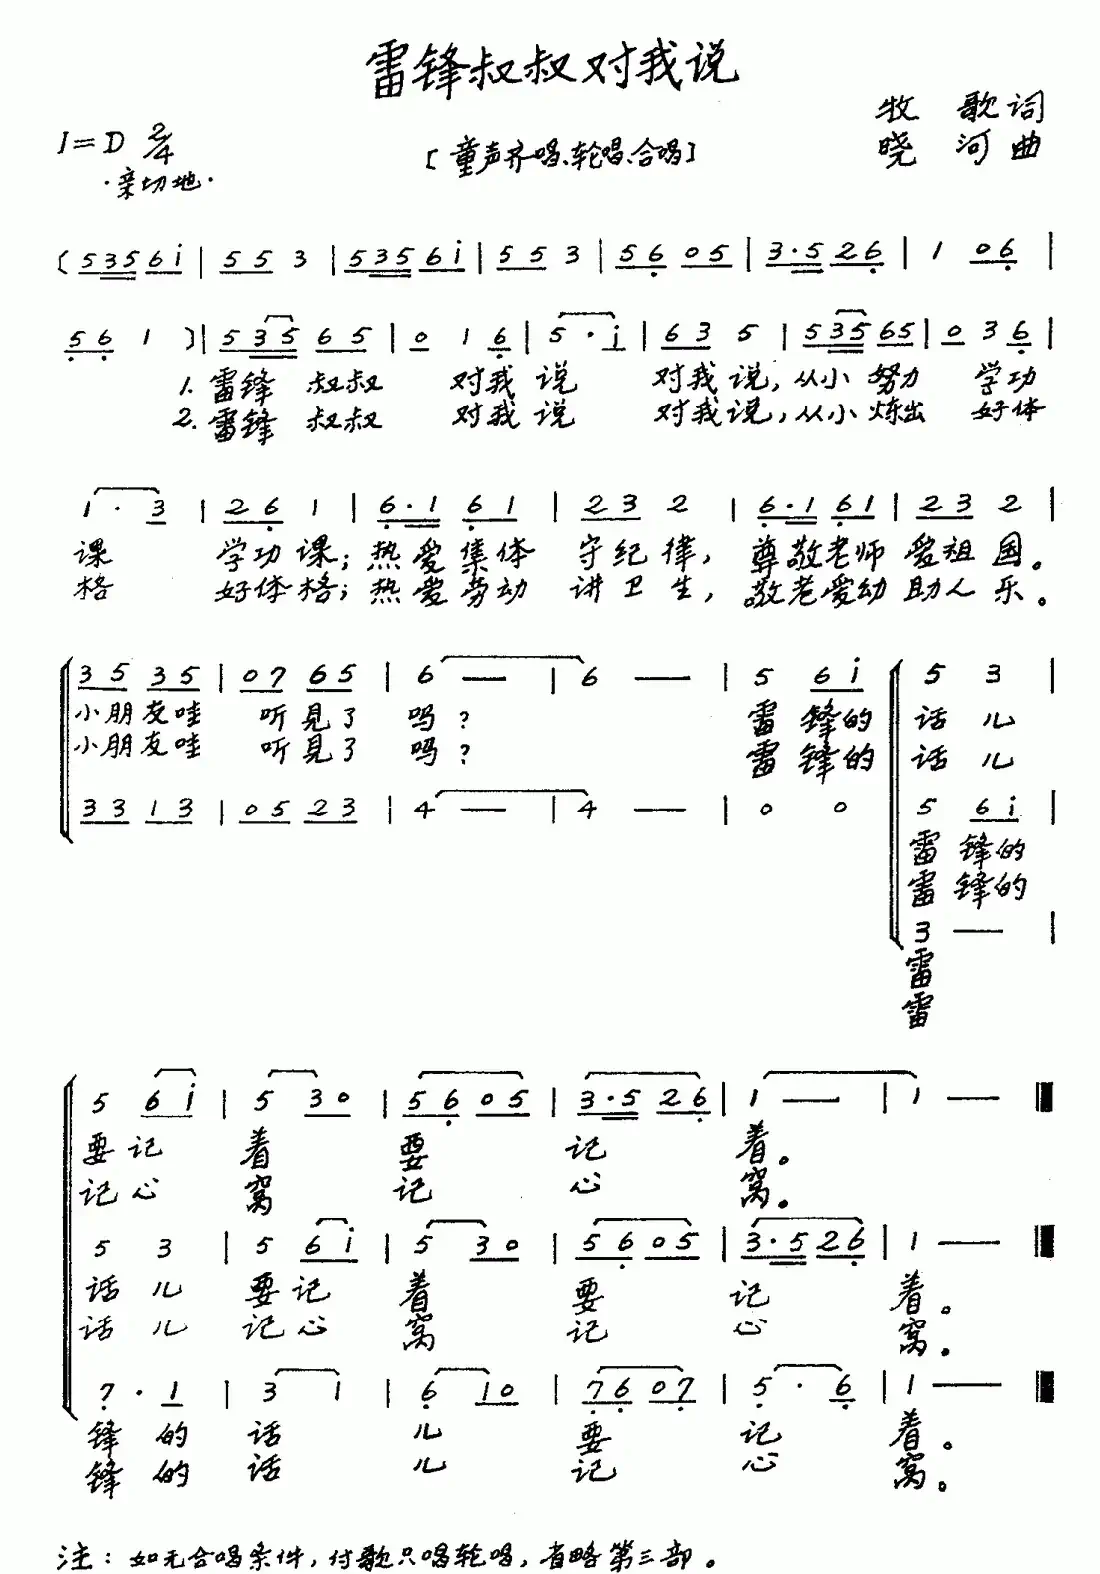 雷锋叔叔对我说
牧 歌词
1=D 2/4
[童声齐唱、轮唱、合唱]
晓 河曲
·亲切地·
(5 3 5 6 i | 5 5 3 | 5 3 5 6 i | 5 5 3 | 5 6 0 5 | 3·5 2 6 | 1 0 6 |
5 6 1 )| 5 3 5 6 5 | 0 1 6 | 5·i | 6 3 5 | 5 3 5 6 5 | 0 3 6 |
1.雷锋 叔叔 对我 说 对我说,从小 努力 学功
2.雷锋 叔叔 对我 说 对我说,从小 炼出 好体
1·3 | 2 6 1 | 6·1 6 1 | 2 3 2 | 6·1 6 1 | 2 3 2 |
课 学功课;热爱集体 守纪律, 尊敬老师 爱祖国。
格 好体格;热爱劳动 讲卫生, 敬老爱幼 助人乐。
3 5 3 5 | 0 7 6 5 | 6 — | 6 — | 5 6 i | 5 3 |
小朋友哇 听见了 吗? 雷锋的 话儿
小朋友哇 听见了 吗? 雷锋的 话儿
3 3 1 3 | 0 5 2 3 | 4 — | 4 — | 0 0 | 5 6 i |
雷锋的
雷锋的
3 — |
雷
雷
5 6 i | 5 3 0 | 5 6 0 5 | 3·5 2 6 | 1 — | 1 — ‖
要记 着 要 记 着。
记心 窝 记 心 窝。
5 3 | 5 6 i | 5 3 0 | 5 6 0 5 | 3·5 2 6 | 1 — ‖
话儿 要记 着 要 记 着。
话儿 记心 窝 记 心 窝。
7·1 | 3 1 | 6 1 0 | 7 6 0 7 | 5·6 | 1 — ‖
锋 的 话 儿 要 记 着。
锋 的 话 儿 记 心 窝。
注:如无合唱条件,付歌只唱轮唱,省略第三部。